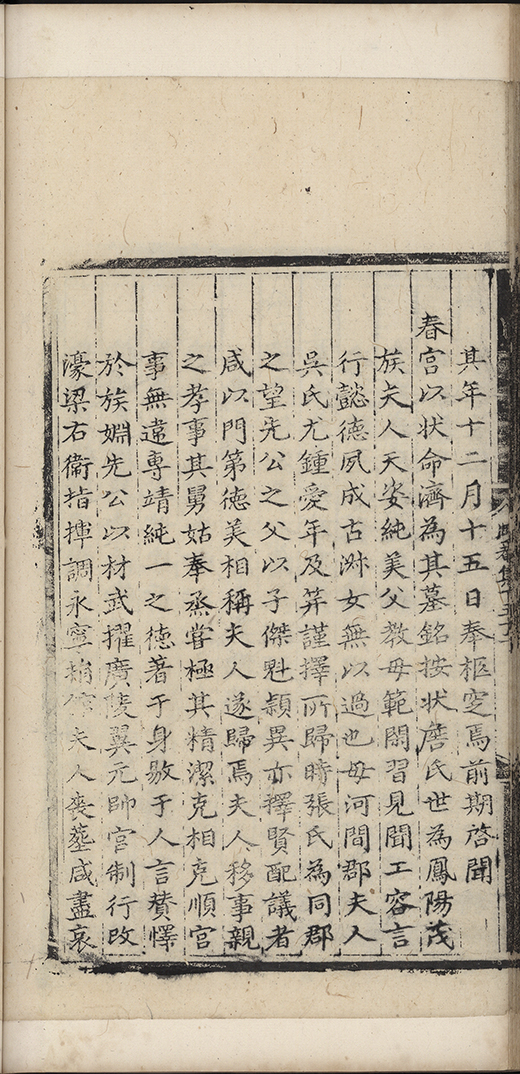 其年十二月十五日奉柩窆焉前期啓聞
春宫以状命濟為其墓銘按状詹氏世為鳳陽茂
族夫人天姿純美父教母範閑習見聞工容言
行懿德夙成古淑女無以過也母河間郡夫人
吳氏尤鍾愛年及笄謹擇所歸時張氏為同郡
之望先公之父以子傑魁頴異亦擇賢配議者
咸以門第德美相稱夫人遂歸焉夫人移事親
之孝事其舅姑奉烝嘗極其精潔克相克順宫
事無違專靖純一之德著于身敭于人言賛懌
於族婣先公以材武擢廣陵翼元帥官制行改
濠梁右衞指揮調永寧捐夫人喪塟咸盡哀